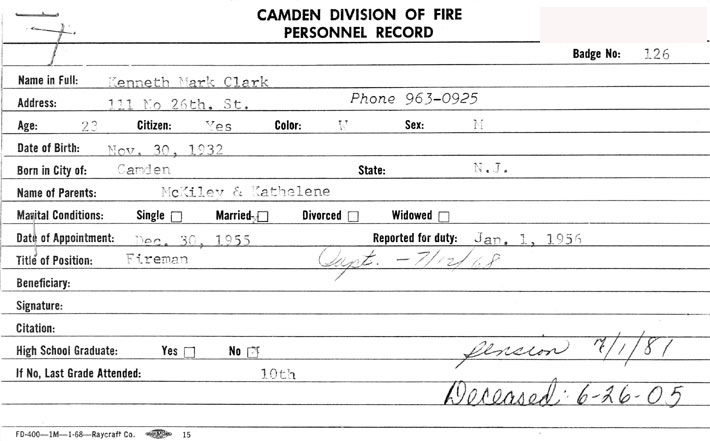 CAMDEN DIVISION OF FIRE
PERSONNEL RECORD
Badge No: 126
Name in Full: Kenneth Mark Clark
Address: 111 No 26th. St. Phone 963-0925
Age: 23 Citizen: Yes Color: W Sex: M
Date of Birth: Nov. 30, 1932
Born in City of: Camden State: N.J.
Name of Parents: McKiley & Kathelene
Marital Conditions: Single Married Divorced Widowed
Date of Appointment: Dec. 30, 1955 Reported for duty: Jan. 1, 1956
Title of Position: Fireman Capt. - 7/12/68
Beneficiary:
Signature:
Citation:
High School Graduate: Yes No pension 7/1/81
If No, Last Grade Attended: 10th
Deceased: 6-26-05
FD-400—1M—1-68—Raycraft Co. 15